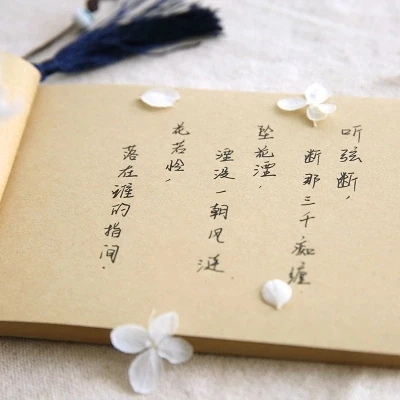 听弦断,
断那三千痴缠
坠花湮,
湮没一朝风涟
花若怜,
落在谁的指间.